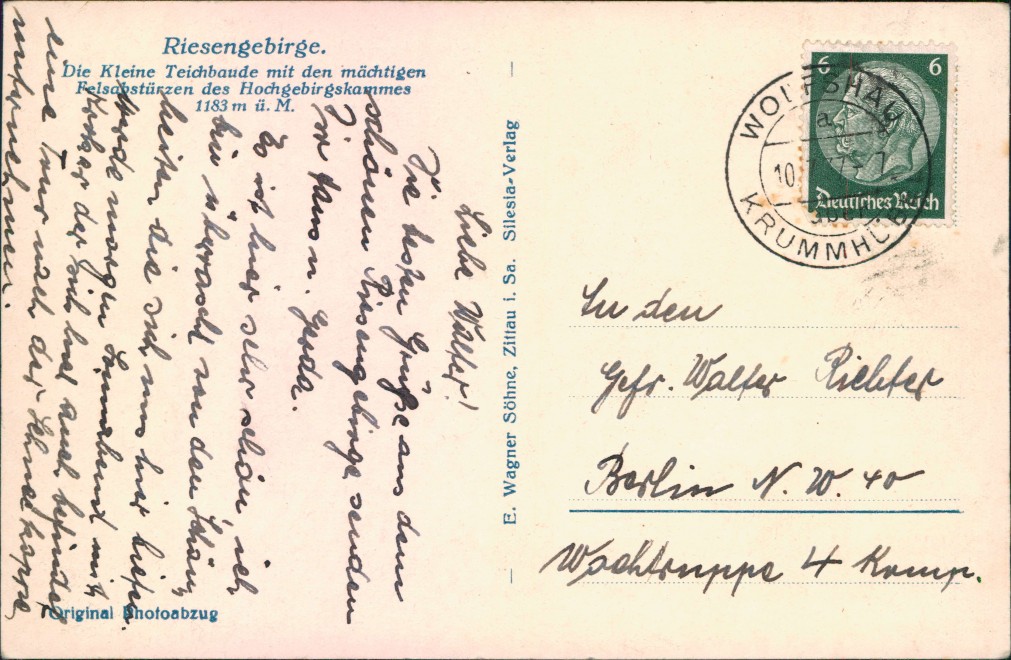 Riesengebirge.
Die Kleine Teichbaude mit den mächtigen
Felsabstürzen des Hochgebirgskammes
1183 m ü. M.
Liebe Walter!
Die besten Grüße aus dem
schönen Riesengebirge senden
Dir Hans u. Gerda.
Es ist hier sehr schön, ich
bin überrascht von den Schön
heiten die sich uns hier bieten.
Werde morgen Sonnabend mit
der sich hier auch befindet
eine Tour nach der Schneekoppe
unternehmen.
Original Photoabzug
E. Wagner Söhne, Zittau i. Sa. Silesia-Verlag
6 6
Deutsches Reich
WOLFSHAU
a
10
KRUMMHÜB
An den
Gefr. Walter Richter
Berlin N.W. 40
Wachtruppe 4 Komp.